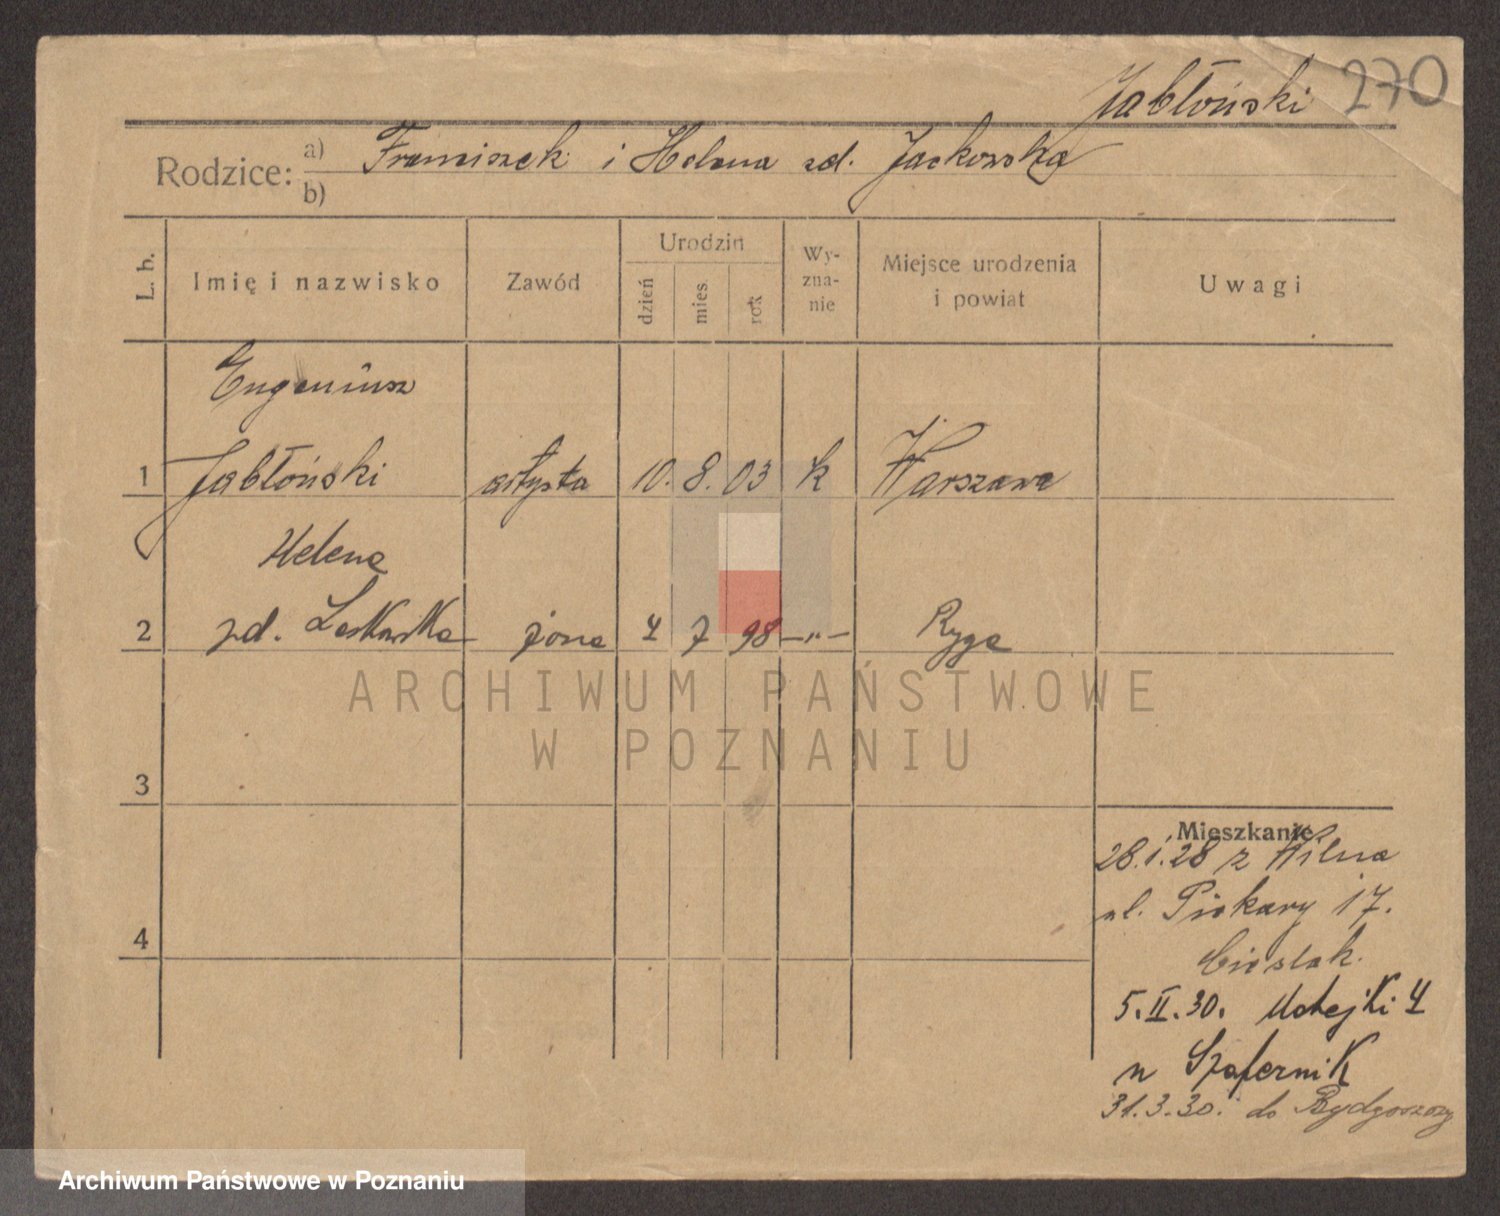 Jabłoński 270
Rodzice: a) Franciszek i Helena zd. Jackowska
b)
L. b. Imię i nazwisko Zawód Urodzin dzień mies. rok Wy-zna-nie Miejsce urodzenia i powiat Uwagi
Eugeniusz
1 Jabłoński artysta 10. 8. 03 k Warszawa
Helena
2 zd. żona 4 7 98 —"— Ryga
3
4
Mieszkanie
28.1.28 z Wilna
ul. Piekary 17.
Cieślak.
5.II.30. Matejki 4
u Szafernik
31.3.30. do Bydgoszczy
ARCHIWUM PAŃSTWOWE
W POZNANIU
Archiwum Państwowe w Poznaniu